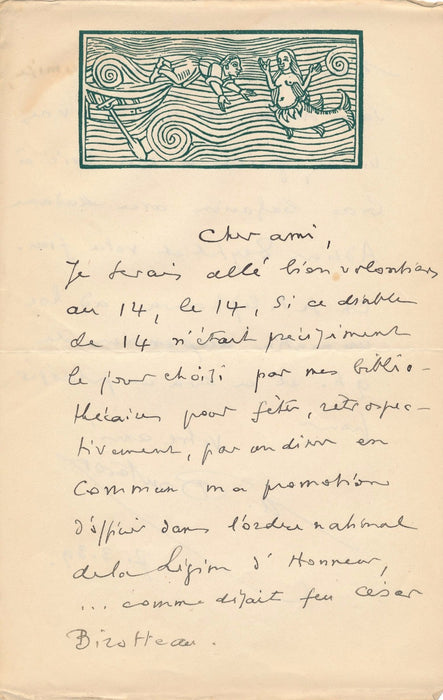 Cher ami,
Je serais allé bien volontiers
au 14, le 14, si ce diable
de 14 n'était précisément
le jour choisi par mes biblio-
thécaires pour fêter, rétrospec-
tivement, par un dîner en
commun ma promotion
d'officier dans l'ordre national
de la Légion d'Honneur,
... comme disait feu César
Birotteau.